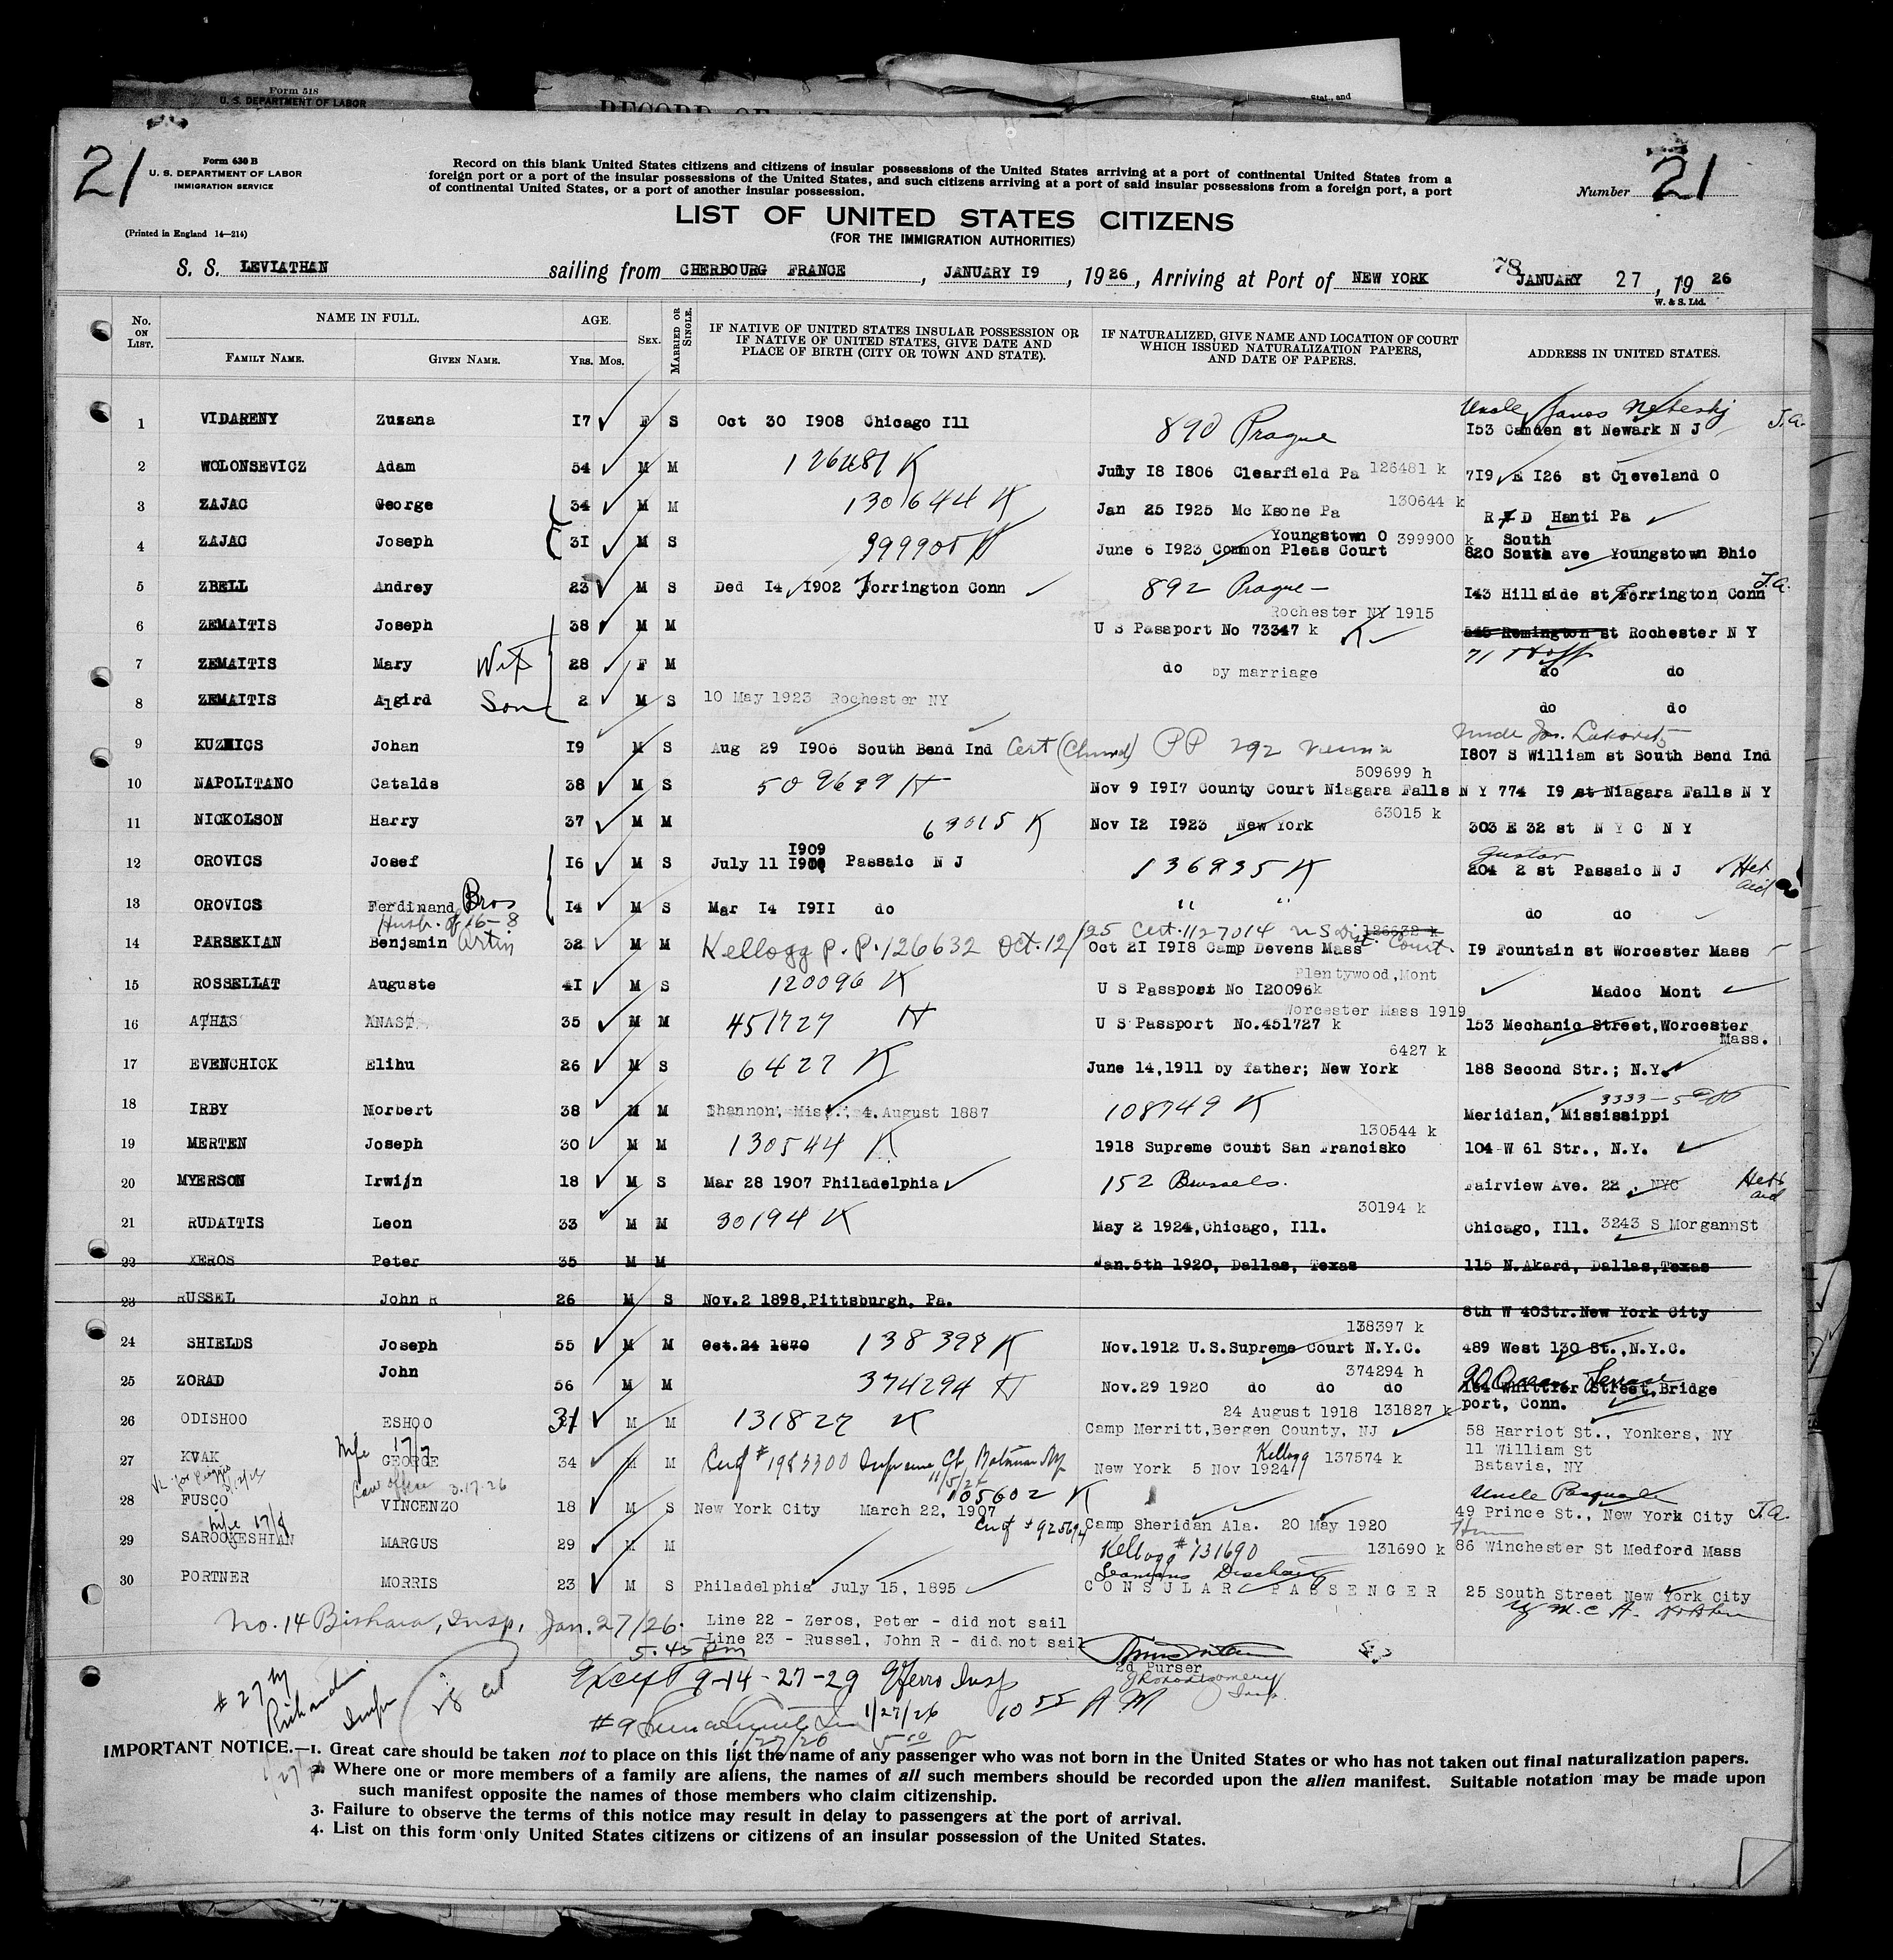 Form 518
U. S. DEPARTMENT OF LABOR
RECORD OF
Stat., and
21
Form 630 B
U. S. DEPARTMENT OF LABOR
IMMIGRATION SERVICE
(Printed in England 14—214)
Record on this blank United States citizens and citizens of insular possessions of the United States arriving at a port of continental United States from a
foreign port or a port of the insular possessions of the United States, and such citizens arriving at a port of said insular possessions from a foreign port, a port
of continental United States, or a port of another insular possession.
Number 21
LIST OF UNITED STATES CITIZENS
(FOR THE IMMIGRATION AUTHORITIES)
S. S. LEVIATHAN sailing from CHERBOURG FRANCE, JANUARY I9, 1926, Arriving at Port of NEW YORK 78 JANUARY 27, 1926
W. & S. Ltd.
No. ON LIST. NAME IN FULL. FAMILY NAME. GIVEN NAME. AGE. Yrs. Mos. SEX. MARRIED OR SINGLE. IF NATIVE OF UNITED STATES INSULAR POSSESSION OR IF NATIVE OF UNITED STATES, GIVE DATE AND PLACE OF BIRTH (CITY OR TOWN AND STATE). IF NATURALIZED, GIVE NAME AND LOCATION OF COURT WHICH ISSUED NATURALIZATION PAPERS, AND DATE OF PAPERS. ADDRESS IN UNITED STATES.
Uncle Janos
1 VIDARENY Zuzana I7 F S Oct 30 I908 Chicago Ill 890 Prague I53 Camden st Newark N J J.A.
2 WOLONSEVICZ Adam 54 M M 126481 K July I8 I806 Clearfield Pa 126481 k 7I9 E I26 st Cleveland O
3 ZAJAC George 34 M M 130644 K Jan 25 I925 Mc Ksone Pa 130644 k R F D Hanti Pa
Youngstown O South
4 ZAJAC Joseph 3I M S 399900 K June 6 I923 Common Pleas Court 399900 k 820 South ave Youngstown Ohio
5 ZBELL Andrey 23 M S Ded I4 I902 Torrington Conn 892 Prague - I43 Hillside st Torrington Conn J.A.
Rochester NY 1915
6 ZEMAITIS Joseph 38 M M U S Passport No 73347 k K 545 Remington st Rochester N Y
71 Hoff
7 ZEMAITIS Mary Wife 28 F M do by marriage do do
8 ZEMAITIS Algird Son 2 M S 10 May 1923 Rochester NY do do
Uncle Jos.
9 KUZMICS Johan I9 M S Aug 29 I906 South Bend Ind Cert (Church) PP 292 Vienna I807 S William st South Bend Ind
509699 h
10 NAPOLITANO Catalds 38 M S 509699 H Nov 9 I9I7 County Court Niagara Falls N Y 774 I9 st Niagara Falls N Y
63015 k
11 NICKOLSON Harry 37 M M 63015 K Nov I2 I923 New York 303 E 32 st N Y C N Y
I909 Gustav
12 OROVICS Josef I6 M S July 11 Passaic N J 136835 K 204 2 st Passaic N J Heb aid
13 OROVICS Ferdinand Bros I4 M S Mar I4 I9II do " " do do
Husb. of 16-8
14 PARSEKIAN Benjamin Artin 32 M M Kellogg P.P. 126632 Oct. 12/25 Cert. 1127014 U S Dist. Court 126632 k
Oct 2I I9I8 Camp Devens Mass I9 Fountain st Worcester Mass
Plentywood, Mont
15 ROSSELLAT Auguste 4I M S 120096 K U S Passport No I20096k Madoc Mont
Worcester Mass 1919
16 ATHAS ANAST 35 M M 451727 H U S Passport No.451727 k 153 Mechanic Street, Worcester Mass.
6427 k
17 EVENCHICK Elihu 26 M S 6427 K June 14,1911 by father; New York 188 Second Str.; N.Y.
3333 -
18 IRBY Norbert 38 M M Shannon, Miss., 4. August 1887 108749 K Meridian, Mississippi
130544 k
19 MERTEN Joseph 30 M M 130544 K 1918 Supreme Court San Francisko 104 W 61 Str., N.Y.
20 MYERSON Irwin 18 M S Mar 28 1907 Philadelphia 152 Brussels. Fairview Ave. 22, NYC Heb aid
30194 k
21 RUDAITIS Leon 33 M M 30194 K May 2 1924, Chicago, Ill. Chicago, Ill. 3243 S MorgannSt
22 XEROS Peter 35 M M Jan.5th 1920, Dallas, Texas 115 N.Akard, Dallas, Texas
23 RUSSEL John R 26 M S Nov.2 1898, Pittsburgh, Pa. 8th W 40Str. New York City
138397 k
24 SHIELDS Joseph 55 M M Oct.24 1870 138397 K Nov.1912 U.S.Supreme Court N.Y.C. 489 West 130 St., N.Y.C.
374294 h
25 ZORAD John 56 M M 374294 H Nov.29 1920 do do do 90 Ocean Terrace
184 Whittier Street, Bridge port, Conn.
24 August 1918 131827 k
26 ODISHOO ESHOO 31 M M 131827 K Camp Merritt, Bergen County, NJ 58 Harriot St., Yonkers, NY
Mfe 17/7
27 KVAK GEORGE 34 M M Cert # 1983300 Supreme Ct. 11/5/24 New York 5 Nov 1924 Kellogg 137574 k 11 William St Batavia, NY
3.17.26
28 FUSCO VINCENZO 18 M S New York City March 22, 1907 105602 K Uncle Pasquale
49 Prince St., New York City J.A.
29 SAROOKESHIAN MARGUS 29 M M Camp Sheridan Ala. 20 May 1920
Kellogg # 131690 131690 k 86 Winchester St Medford Mass
30 PORTNER MORRIS 23 M S Philadelphia July 15, 1895 Seamans Discharge
CONSULAR PASSENGER 25 South Street New York City
Y M.C A.
No. 14 Bishara, Insp. Jan. 27/26. 5.45 pm
Line 22 - Zeros, Peter - did not sail
Line 23 - Russel, John R - did not sail
2d Purser
Except 9-14-27-29 Insp
1/27/26 10 55 A M
# 27 by
#9
1/27/26
IMPORTANT NOTICE.—1. Great care should be taken not to place on this list the name of any passenger who was not born in the United States or who has not taken out final naturalization papers.
2. Where one or more members of a family are aliens, the names of all such members should be recorded upon the alien manifest. Suitable notation may be made upon
such manifest opposite the names of those members who claim citizenship.
3. Failure to observe the terms of this notice may result in delay to passengers at the port of arrival.
4. List on this form only United States citizens or citizens of an insular possession of the United States.